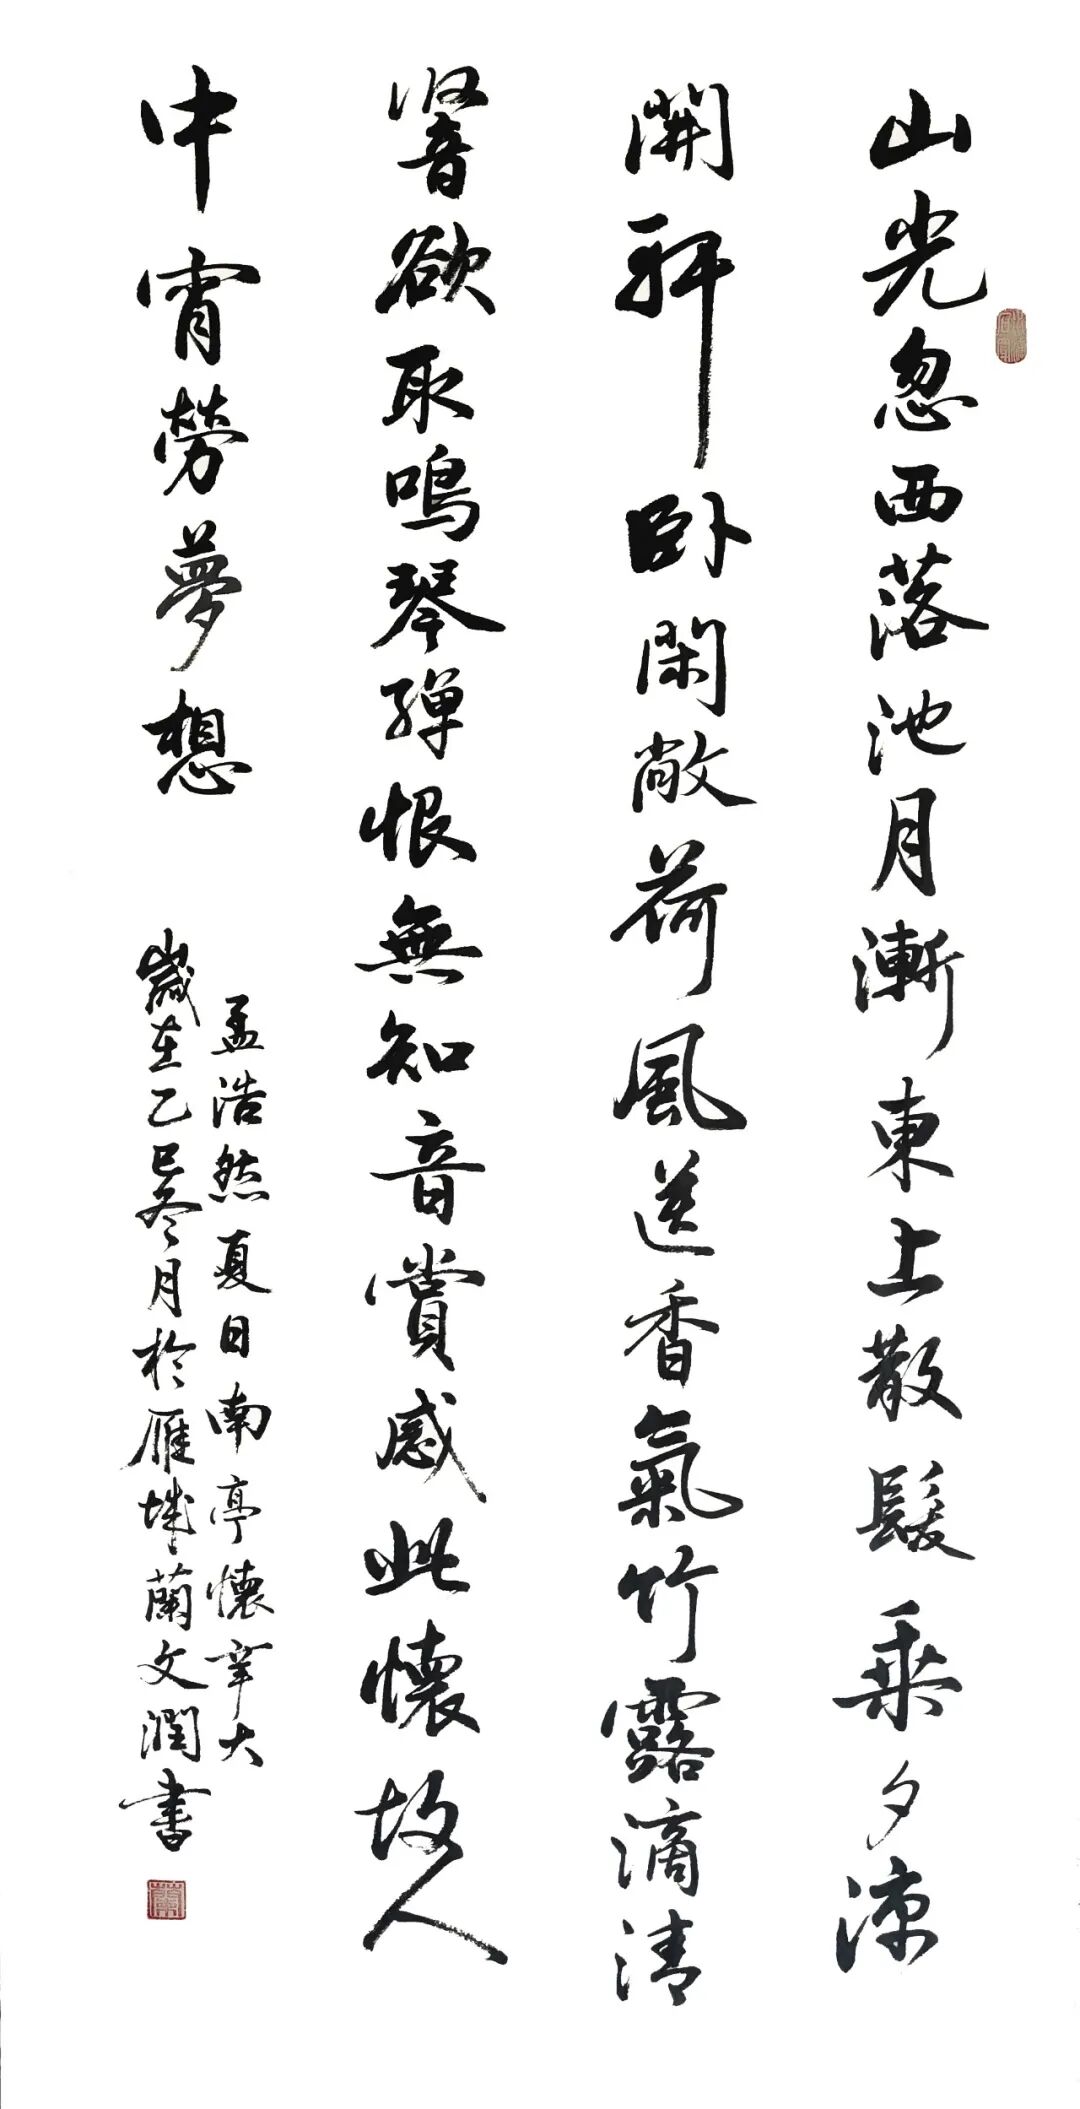 山光忽西落池月漸東上散髮乘夕涼
開軒卧閑敞荷風送香氣竹露滴清
響欲取鳴琴彈恨無知音賞感此懷故人
中宵勞夢想
孟浩然夏日南亭懷辛大
歲在乙巳冬月於雁城蘭文潤書